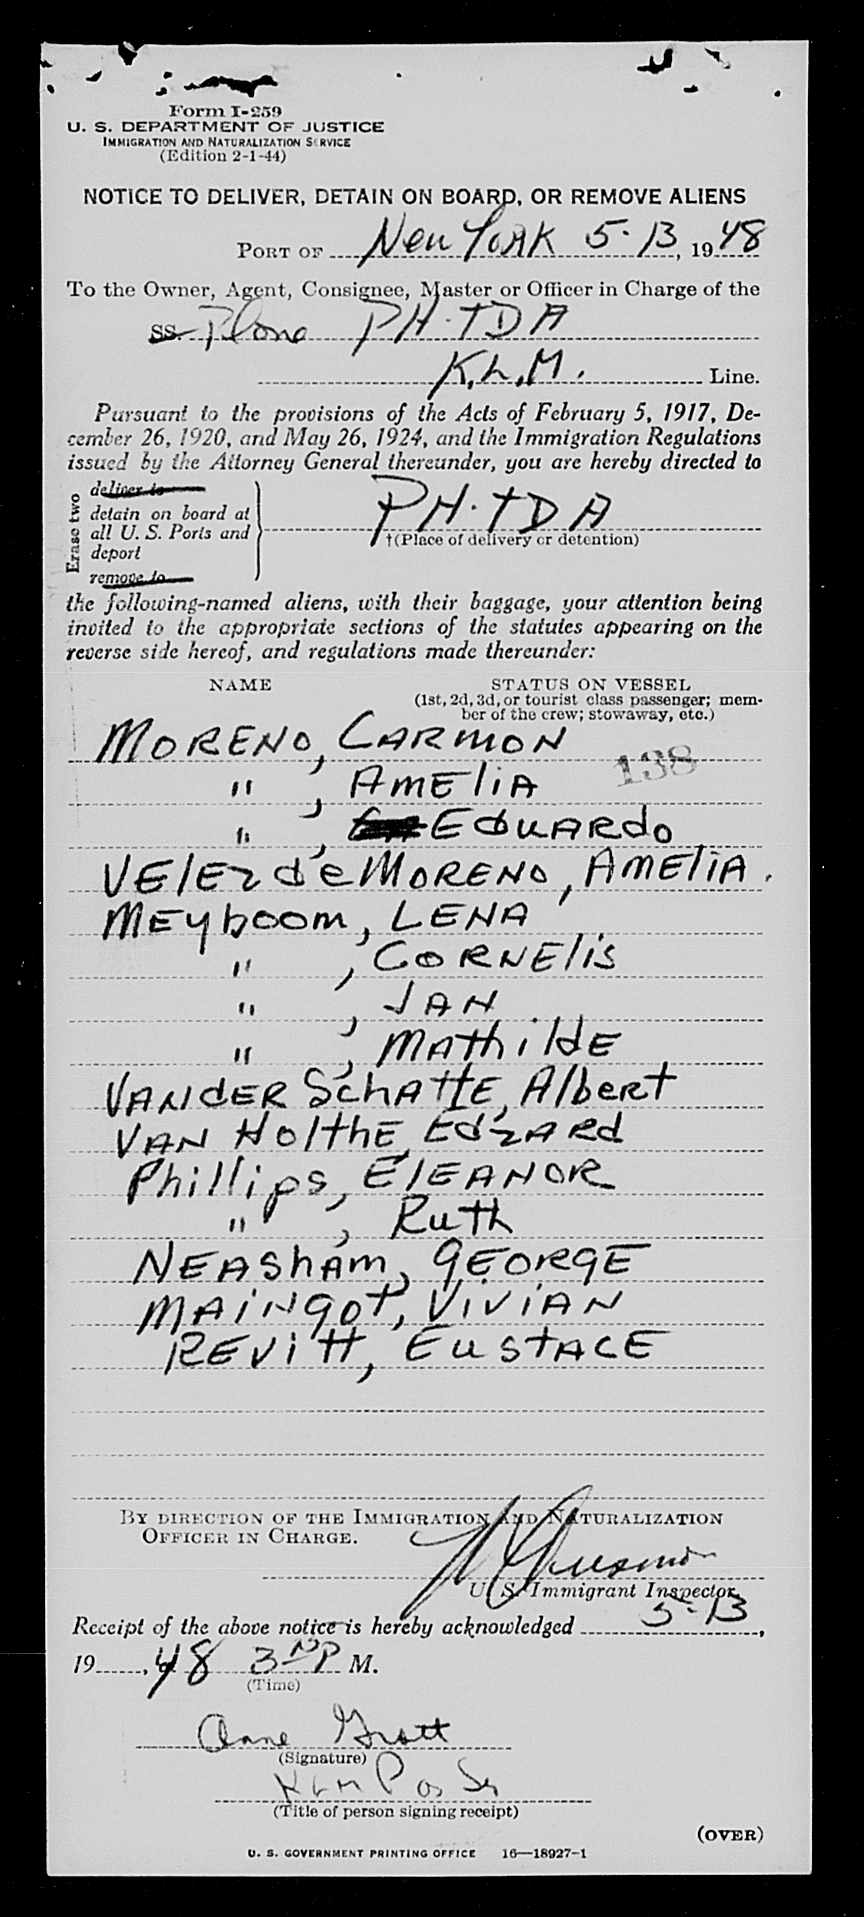 Form I-259
U. S. DEPARTMENT OF JUSTICE
IMMIGRATION AND NATURALIZATION SERVICE
(Edition 2-1-44)
NOTICE TO DELIVER, DETAIN ON BOARD, OR REMOVE ALIENS
PORT OF New York 5-13, 1948
To the Owner, Agent, Consignee, Master or Officer in Charge of the
SS. Plane PH-TDA
K.L.M. Line.
Pursuant to the provisions of the Acts of February 5, 1917, De-
cember 26, 1920, and May 26, 1924, and the Immigration Regulations
issued by the Attorney General thereunder, you are hereby directed to
Erase two
deliver to
detain on board at
all U. S. Ports and
deport
remove to
PH-TDA
†(Place of delivery or detention)
the following-named aliens, with their baggage, your attention being
invited to the appropriate sections of the statutes appearing on the
reverse side hereof, and regulations made thereunder:
NAME STATUS ON VESSEL
(1st, 2d, 3d, or tourist class passenger; mem-
ber of the crew; stowaway, etc.)
MORENO, CARMON
138
" , AMElIA
" , EduARdo
VElEz de MORENO, AMElIA.
MEYboom, LENA
" , CORNElis
" , JAN
" , MAthildE
VANdER SchAttE, Albert
VAN HolthE, EdzARd
Phillips, ElEANOR
" , Ruth
NEAShAm, GEORGE
MAiNgot, ViViAN
REVitt, EustACE
BY DIRECTION OF THE IMMIGRATION AND NATURALIZATION
OFFICER IN CHARGE.
U. S. Immigrant Inspector.
Receipt of the above notice is hereby acknowledged 5-13,
19 , 48 3 P M.
(Time)
Anne Gratt
(Signature)
KLM
(Title of person signing receipt)
(OVER)
U. S. GOVERNMENT PRINTING OFFICE 16—18927-1